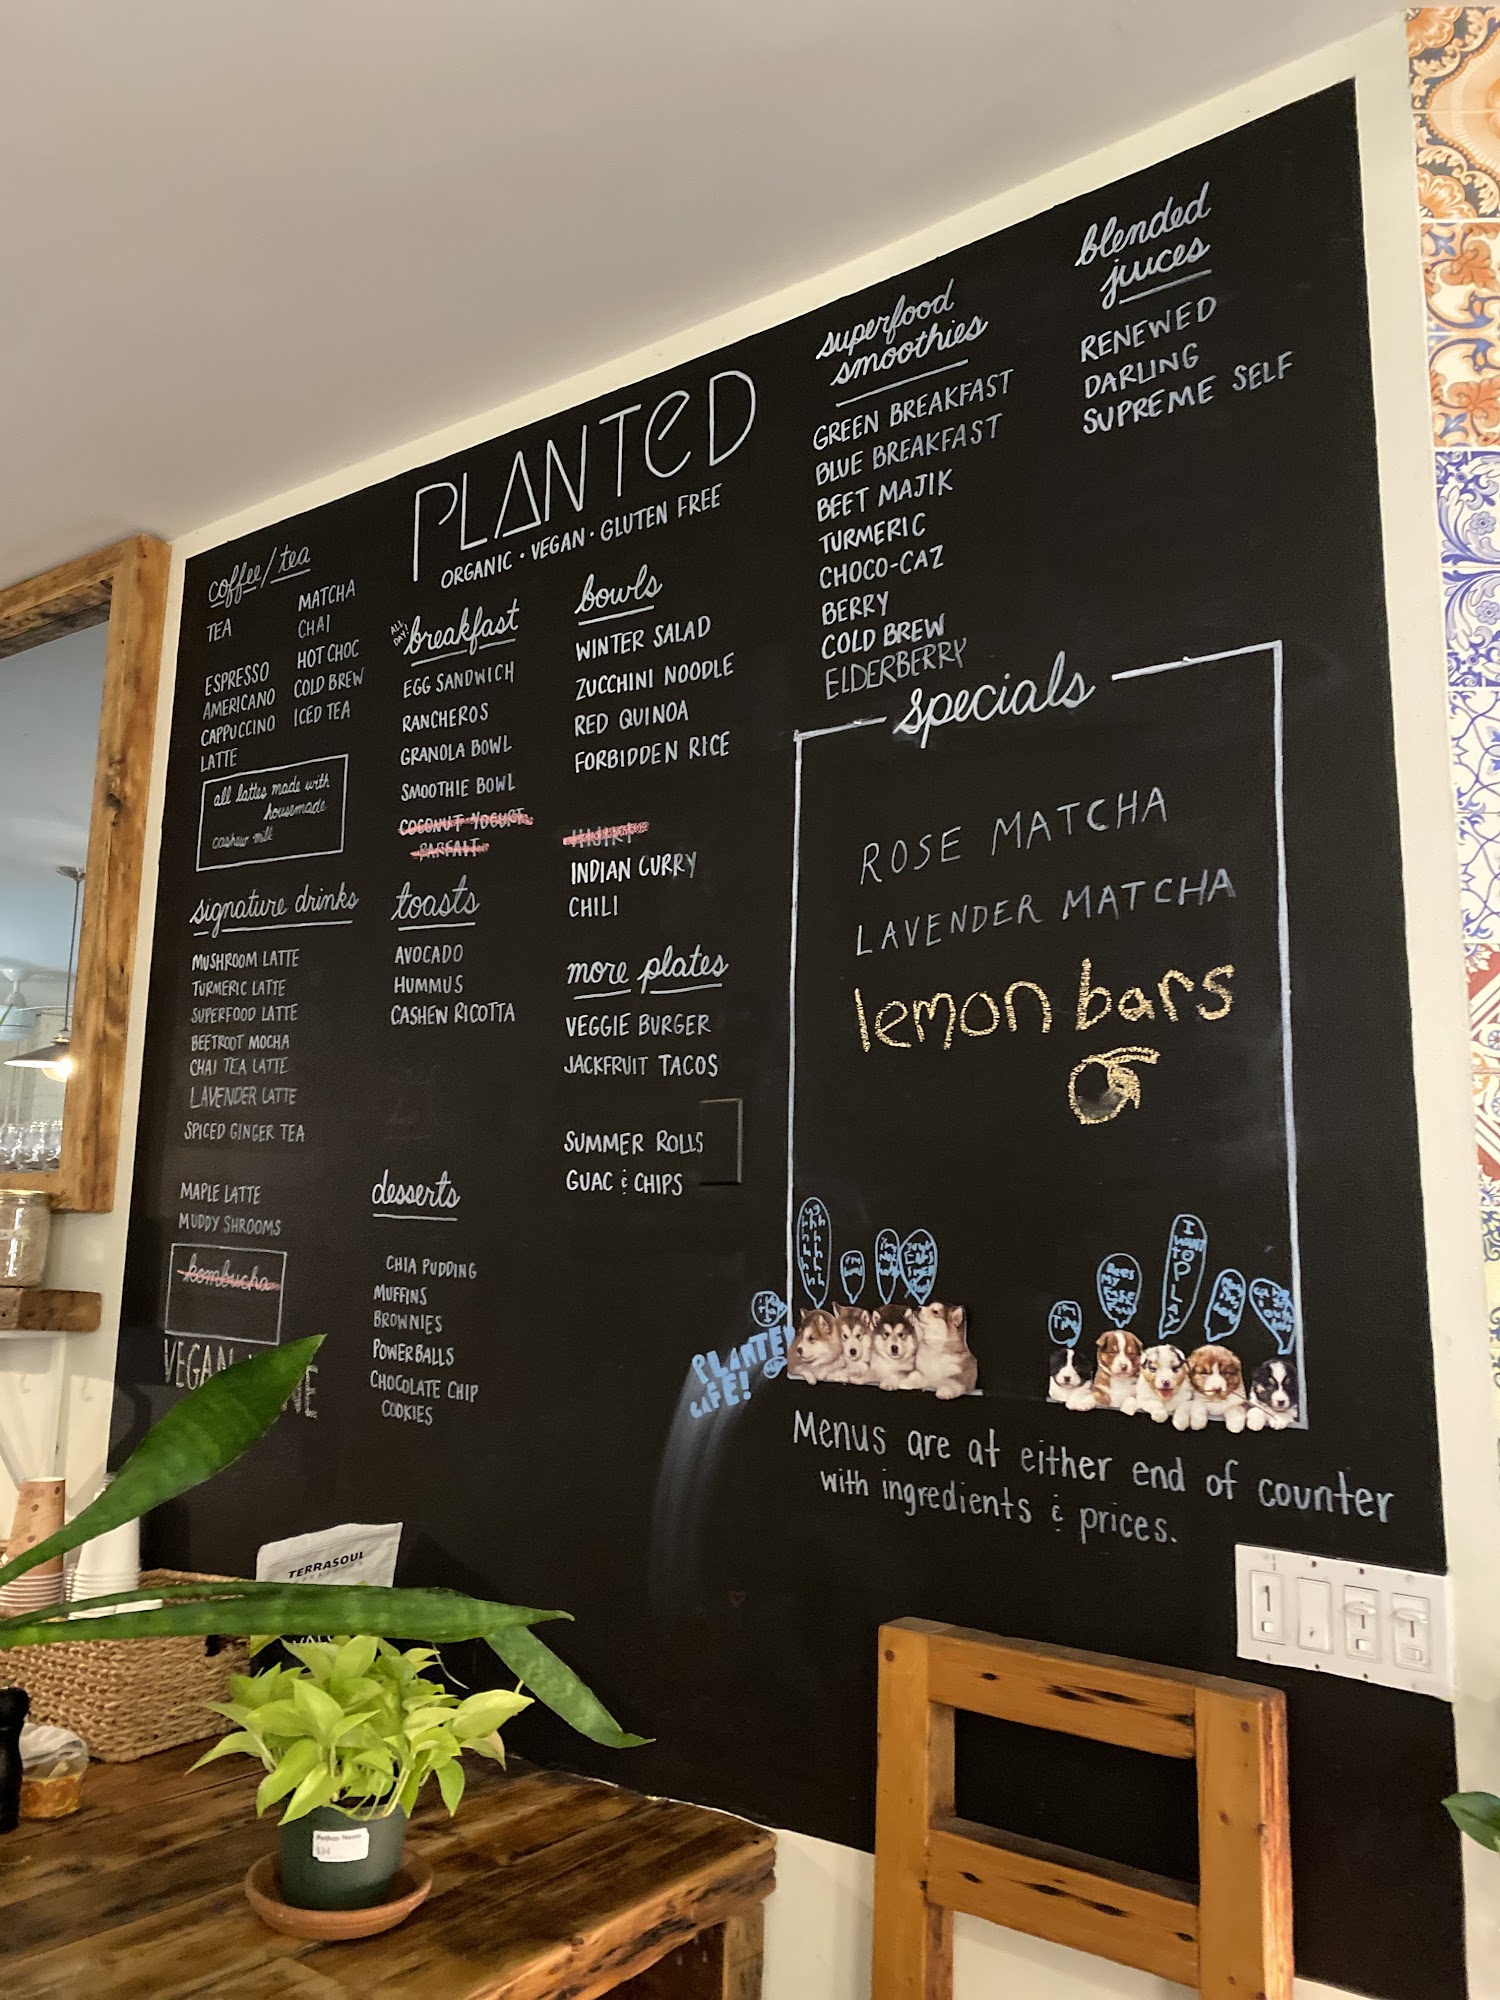 PLANTED
ORGANIC · VEGAN · GLUTEN FREE
coffee/tea
TEA
ESPRESSO
AMERICANO
CAPPUCCINO
LATTE
MATCHA
CHAI
HOT CHOC
COLD BREW
ICED TEA
all lattes made with
housemade
cashew milk
signature drinks
MUSHROOM LATTE
TURMERIC LATTE
SUPERFOOD LATTE
BEETROOT MOCHA
CHAI TEA LATTE
LAVENDER LATTE
SPICED GINGER TEA
MAPLE LATTE
MUDDY SHROOMS
kombucha
VEGAN
ALL
DAY!
breakfast
EGG SANDWICH
RANCHEROS
GRANOLA BOWL
SMOOTHIE BOWL
COCONUT YOGURT
PARFAIT
toasts
AVOCADO
HUMMUS
CASHEW RICOTTA
desserts
CHIA PUDDING
MUFFINS
BROWNIES
POWERBALLS
CHOCOLATE CHIP
COOKIES
bowls
WINTER SALAD
ZUCCHINI NOODLE
RED QUINOA
FORBIDDEN RICE
INDIAN CURRY
CHILI
more plates
VEGGIE BURGER
JACKFRUIT TACOS
SUMMER ROLLS
GUAC & CHIPS
superfood
smoothies
GREEN BREAKFAST
BLUE BREAKFAST
BEET MAJIK
TURMERIC
CHOCO-CAZ
BERRY
COLD BREW
ELDERBERRY
blended
juices
RENEWED
DARLING
SUPREME SELF
Specials
ROSE MATCHA
LAVENDER MATCHA
lemon bars
I WANT TO PLAY
PLANTED
CAFE!
Menus are at either end of counter
with ingredients & prices.
TERRASOUL
Pothos Neon
$34